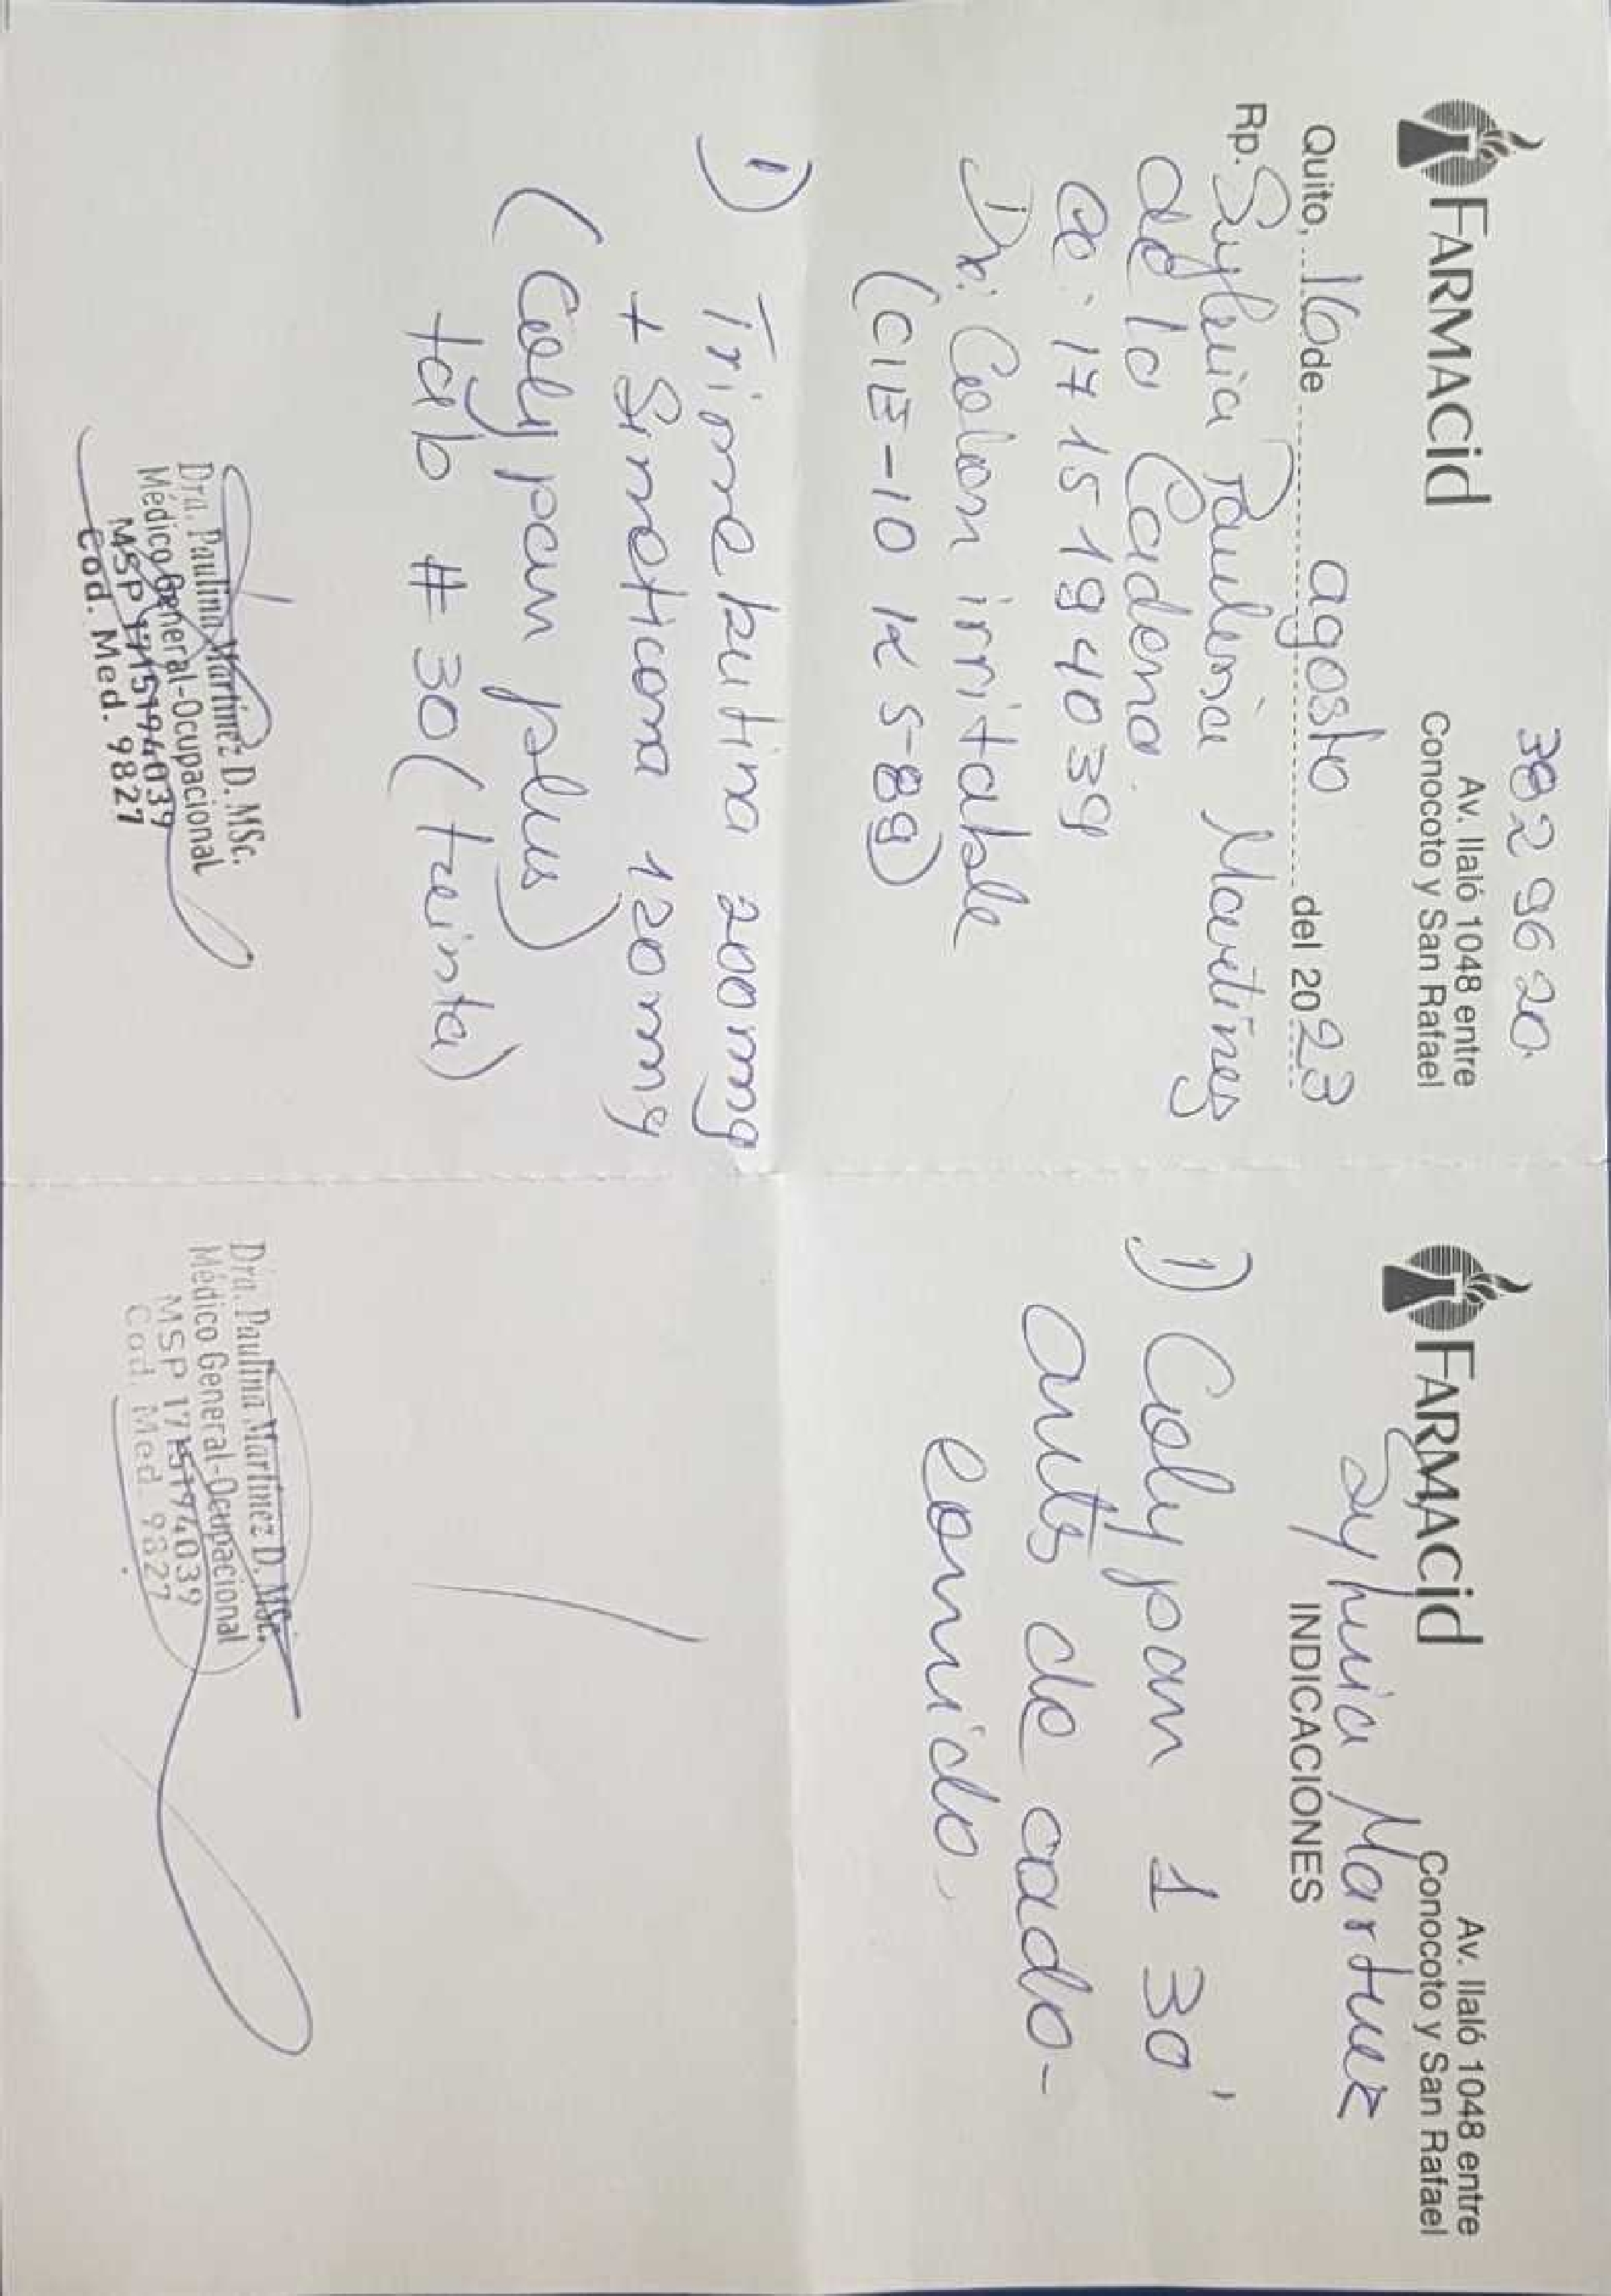 3829620
FARMACid
Av. Ilaló 1048 entre
Conocoto y San Rafael
Quito, 16 de agosto del 2023
Rp. Sylvia Paulina Martínez
de la Cadena
CC: 1715194039
Dx: Colon irritable
(CIE-10 K589)
1) Trimebutina 200mg
+ Simeticona 120mg
(Colypan plus)
tab # 30 (treinta)
Dra. Paulina Martínez D. MSc.
Médico General-Ocupacional
MSP 1715194039
Cod. Med. 9827
FARMACid
Av. Ilaló 1048 entre
Conocoto y San Rafael
Sylvia Martinez
INDICACIONES
1) Colypan 1 30'
antes de cada
comida
Dra. Paulina Martínez D. MSc.
Médico General-Ocupacional
MSP 1715194039
Cod. Med. 9827